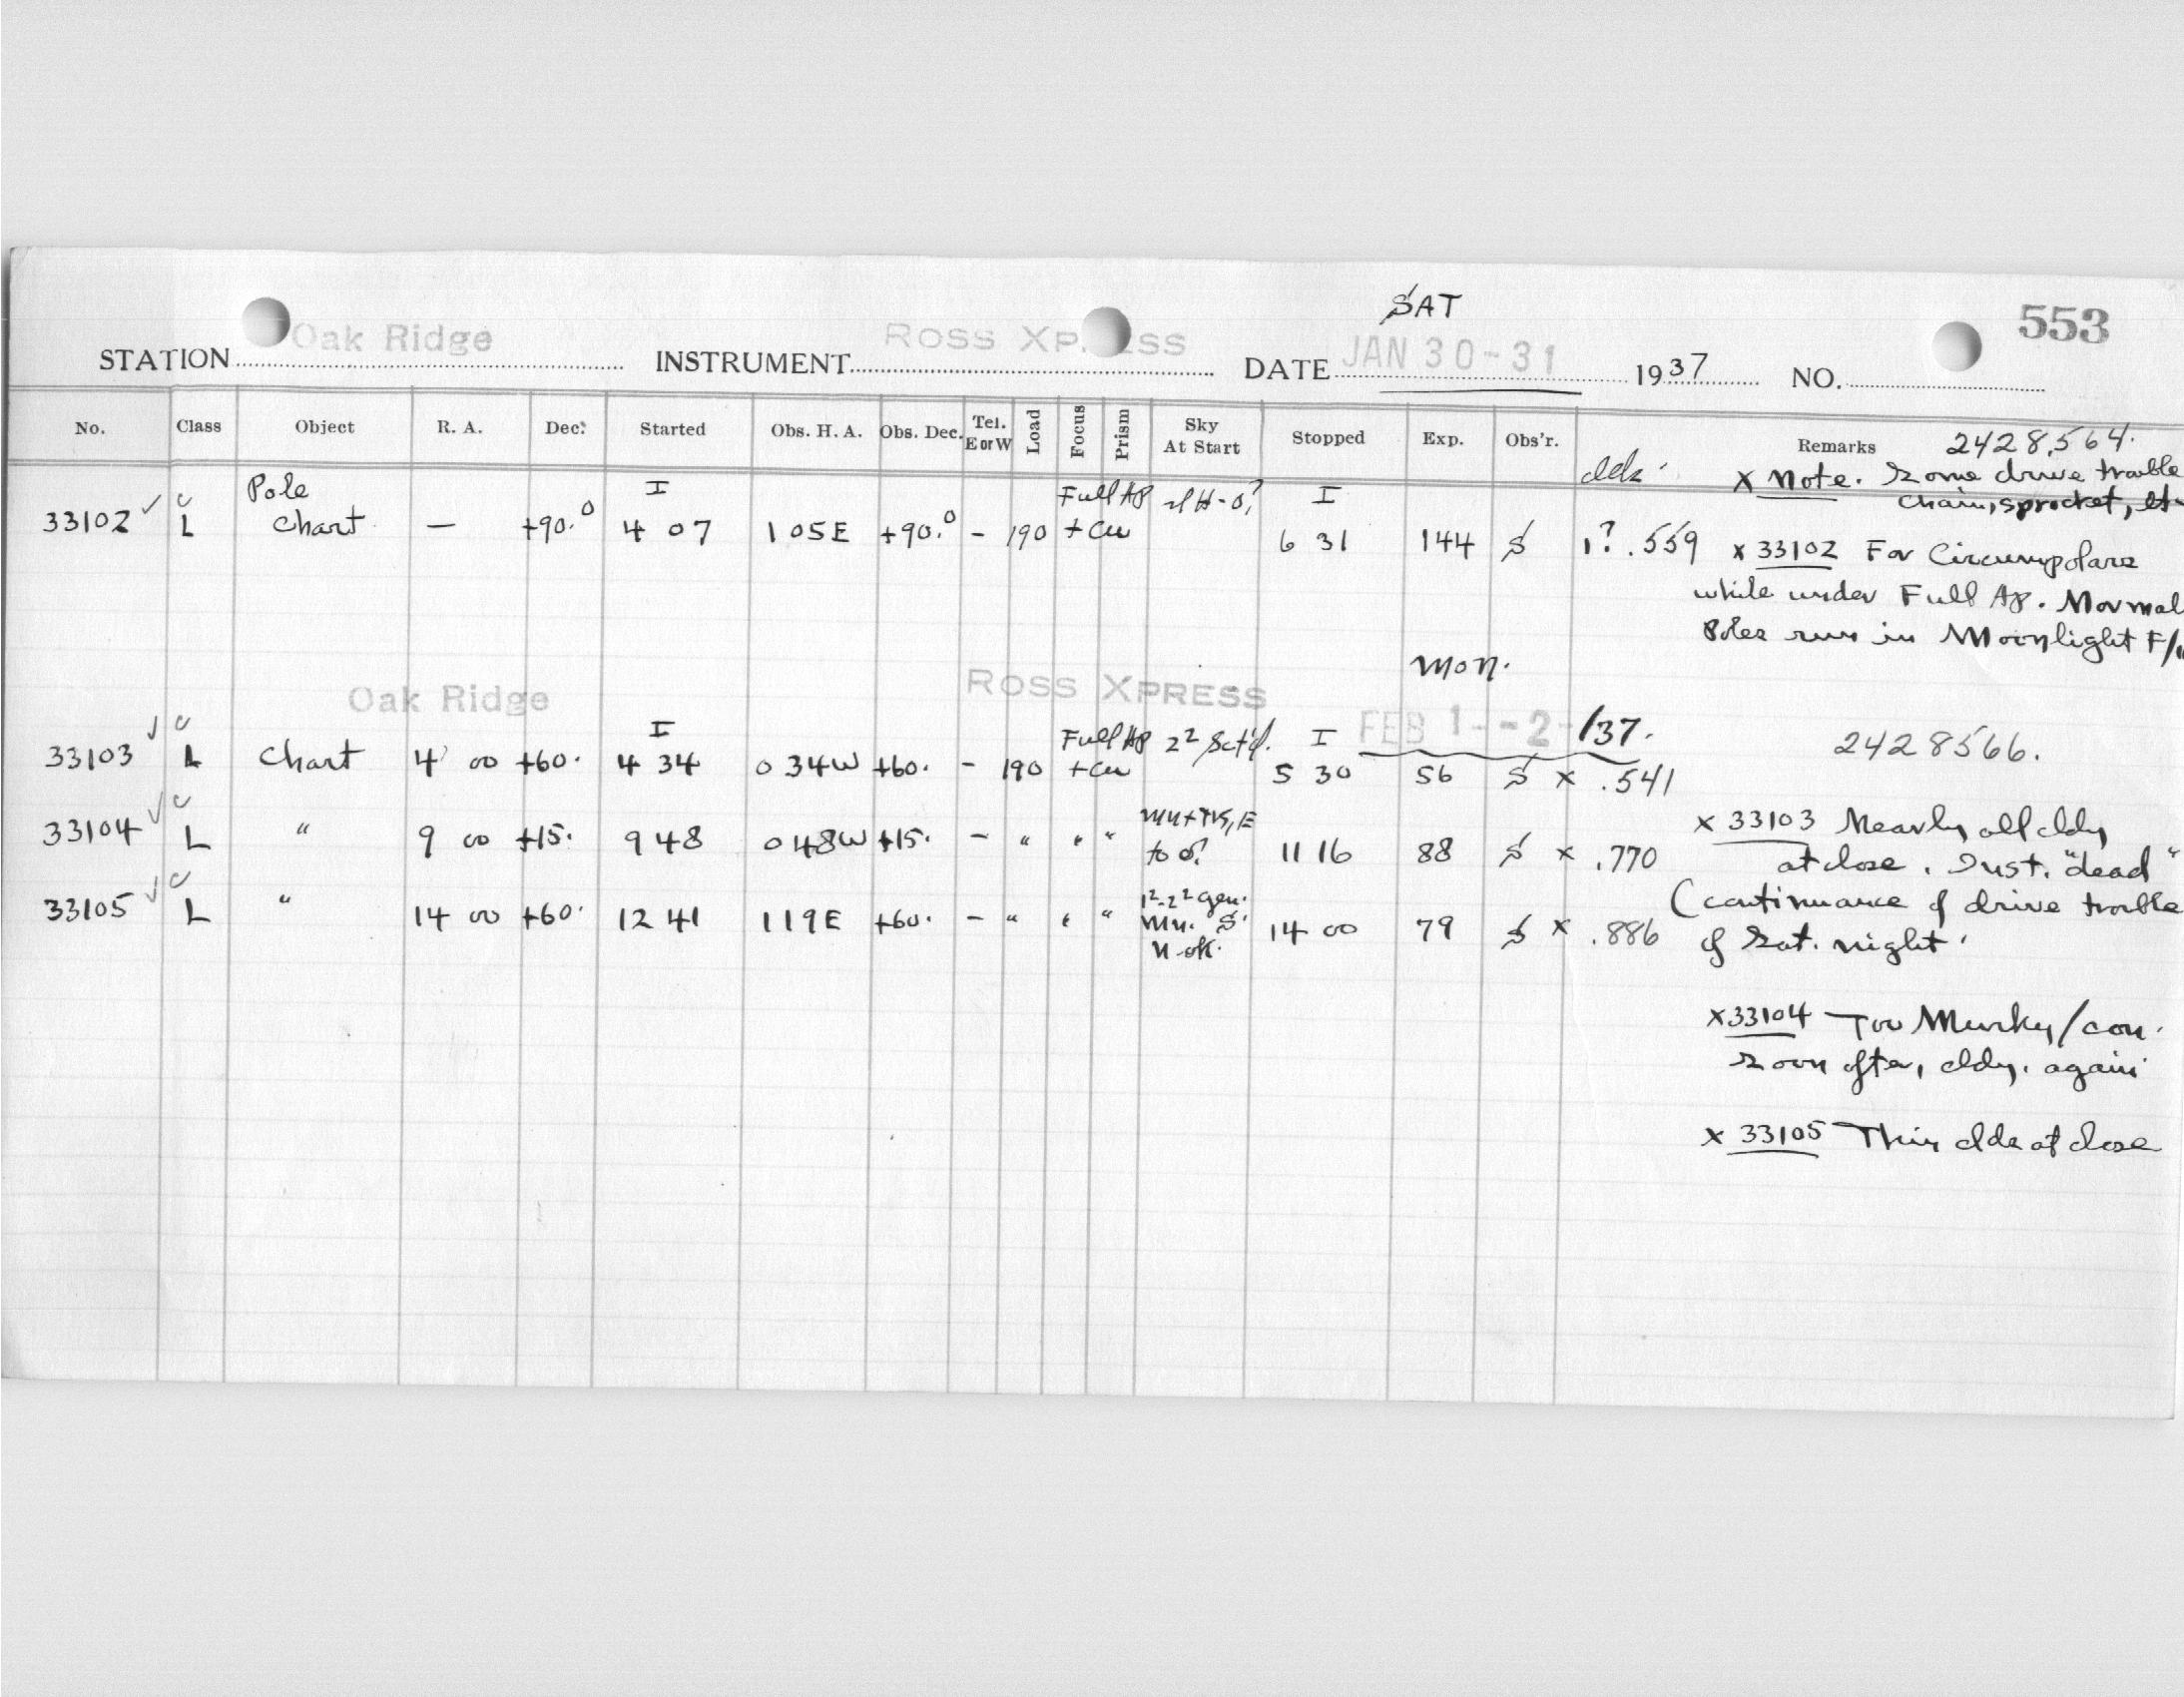 SAT
553
STATION Oak Ridge INSTRUMENT ROSS XP ESS DATE JAN 30-31 1937 NO.
No. Class Object R. A. Dec. Started Obs. H. A. Obs. Dec. Tel. E or W Load Focus Prism Sky At Start Stopped Exp. Obs'r. Remarks 2428,564.
x Note. Some drive trouble
chain, sprocket, etc
Pole I Full Ap I
33102 ✓ c L Chart — +90.° 4 07 1 05E +90.° - 190 + Cu 6 31 144 S 1? .559
x 33102 For Circumpolars
while under Full Ap. Normal
Poles run in Moonlight F/
Mon.
Oak Ridge ROSS XPRESS FEB 1--2-/37.
2428566.
33103 ✓ c L Chart 4 00 +60. I 4 34 0 34W +60. - 190 Full Ap + Cu 2² Sct'd. I 5 30 56 S x .541
33104 ✓ c L " 9 00 +15. 9 48 0 48W +15. - " " " to 11 16 88 S x .770
33105 ✓ c L " 14 00 +60. 12 41 1 19E +60. - " " " 1²-2² gen. Mn. S N-ok. 14 00 79 S x .886
x 33103 Nearly all cldy
at close. Inst. "dead"
(continuance of drive trouble
of Sat. night.
x 33104 Too Murky/con.
Soon after, cldy. again
x 33105 Thin clds at close